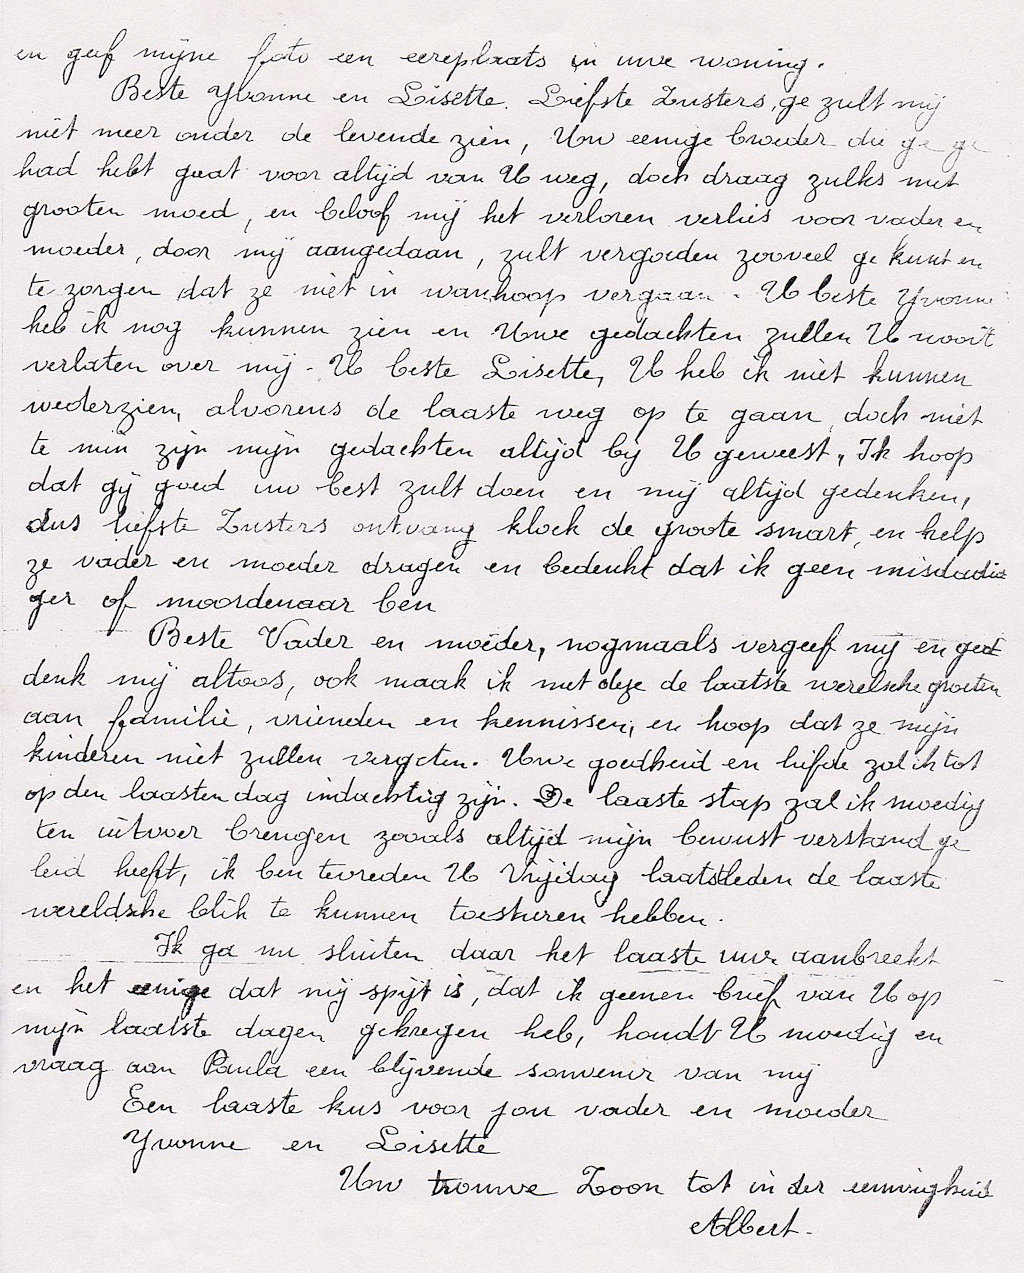 en geef mijne foto een eereplaats in uwe woning.
Beste Yvonne en Lisette. Liefste Zusters, ge zult mij
niet meer onder de levende zien, Uw eenige broeder die ge ge
had hebt gaat voor altijd van U weg, doch draag zulks met
grooten moed, en beloof mij het verloren verlies voor vader en
moeder, door mij aangedaan, zult vergoeden zooveel ge kunt en
te zorgen dat ze niet in wanhoop vergaan. U beste Yvonne
heb ik nog kunnen zien en Uwe gedachten zullen U nooit
verlaten over mij. U beste Lisette, U heb ik niet kunnen
wederzien, alvorens de laaste weg op te gaan, doch niet
te min zijn mijn gedachten altijd bij U geweest. Ik hoop
dat gij goed uw best zult doen en mij altijd gedenken,
dus liefste Zusters ontvang kloek de groote smart, en help
ze vader en moeder dragen en bedenkt dat ik geen misdadi
ger of moordenaar ben
Beste Vader en moeder, nogmaals vergeef mij en ged
denk mij altoos, ook maak ik met deze de laatste werelsche groeten
aan familie, vrienden en kennissen, en hoop dat ze mijn
kinderen niet zullen vergeten. Uwe goedheid en liefde zal ik tot
op den laasten dag indachtig zijn. De laaste stap zal ik moedig
ten uitvoer brengen zooals altijd mijn bewust verstand ge
leid heeft, ik ben tevreden U Vrijdag laatstleden de laaste
wereldsche blik te kunnen toesturen hebben.
Ik ga nu sluiten daar het laaste uur aanbreekt
en het eenige dat mij spijt is, dat ik geenen brief van U op
mijn laatste dagen gekregen heb, houdt U moedig en
vraag aan Paula een blijvende souvenir van mij
Een laaste kus voor jou vader en moeder
Yvonne en Lisette
Uw trouwe Zoon tot in der eeuwigheid
Albert.